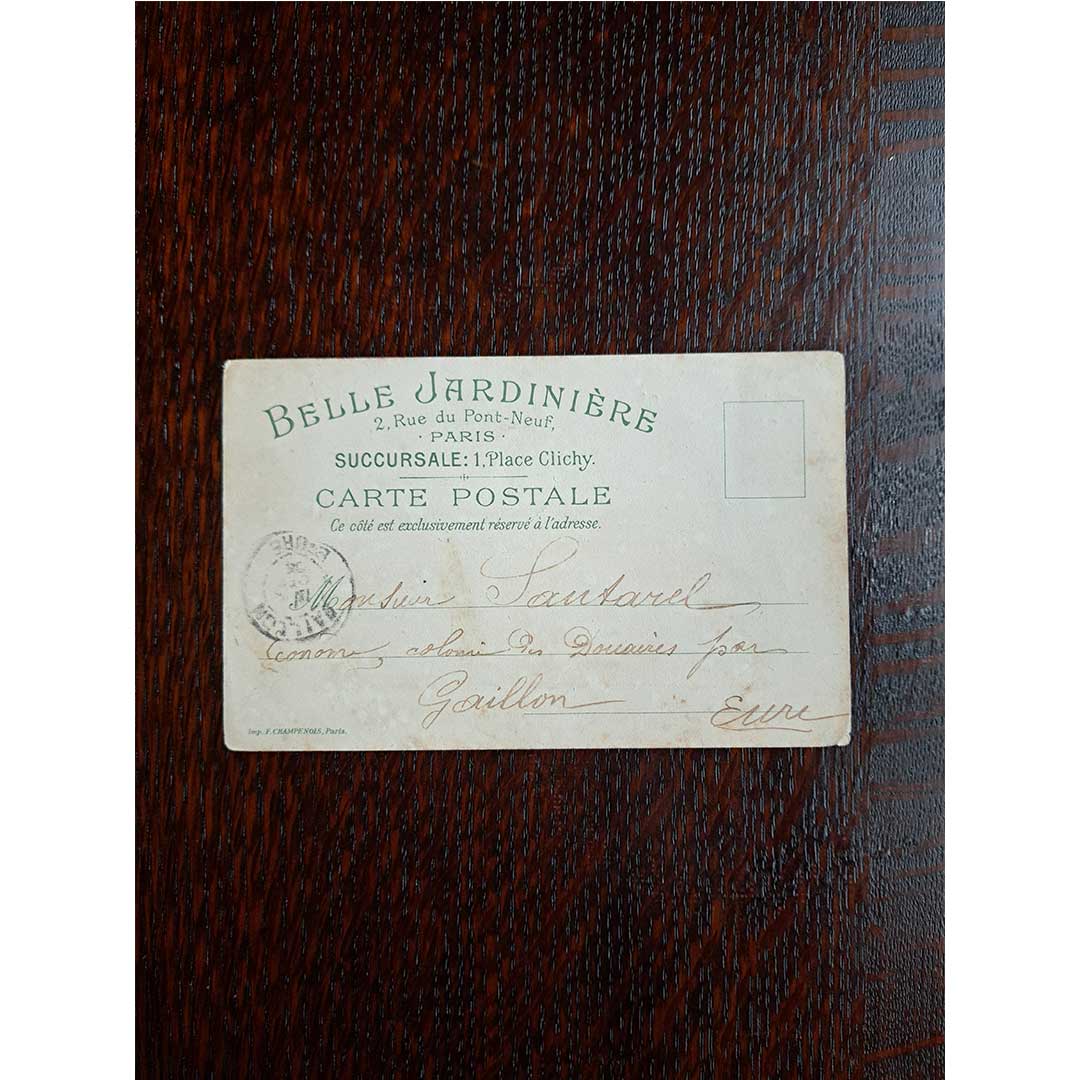 BELLE JARDINIÈRE
2, Rue du Pont-Neuf,
· PARIS ·
SUCCURSALE: 1, Place Clichy.
CARTE POSTALE
Ce côté est exclusivement réservé à l'adresse.
Monsieur Santarel
Econome, colonie des Douaires par
Gaillon Eure
GAILLON
EURE
Imp. F. CHAMPENOIS, Paris.